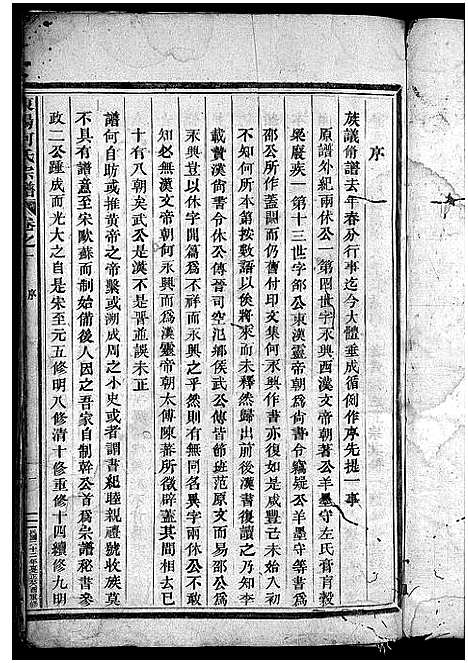 序
族議脩譜去年春分行事迄今大體垂成循例作序先提一事
原譜外紀兩休公一第四世字永興西漢文帝朝著公羊墨守左氏膏肓穀
梁廢疾一第十三世字邵公東漢靈帝朝爲尙書令竊疑公羊墨守等書爲
邵公所作蓋嗣而仍舊付印文集何永興作書亦復如是咸豐己未始入初
不知何所本第按敷語以俟將來而未釋然歸出前後漢書復讀之乃知李
載賛漢尙書令休公傳晉司空氾鄉侯武公傳皆節班范原文而易邵公爲
永興豈以休字開篇爲不祥而永興之乎然則有無同名異字兩休公不敢
知必無漢文帝朝何永興而爲漢靈帝朝太傅陳蕃所徵辟蓋其間相去已
十有八朝矣武公是漢不是晋並誤未正
譜何自助或推黃帝之帝槼或溯成周之小史或者謂書紀睦親禮號收族莫
不具有譜意至宋歐蘇而制始備後人因之吾家自制幹公首爲宗譜秘書參
政二公踵成而光大之自是宋至元五修明八修清十修重修十四續修九明
東陽何氏宗譜卷之一
序
一
民國二十二年癸酉重修